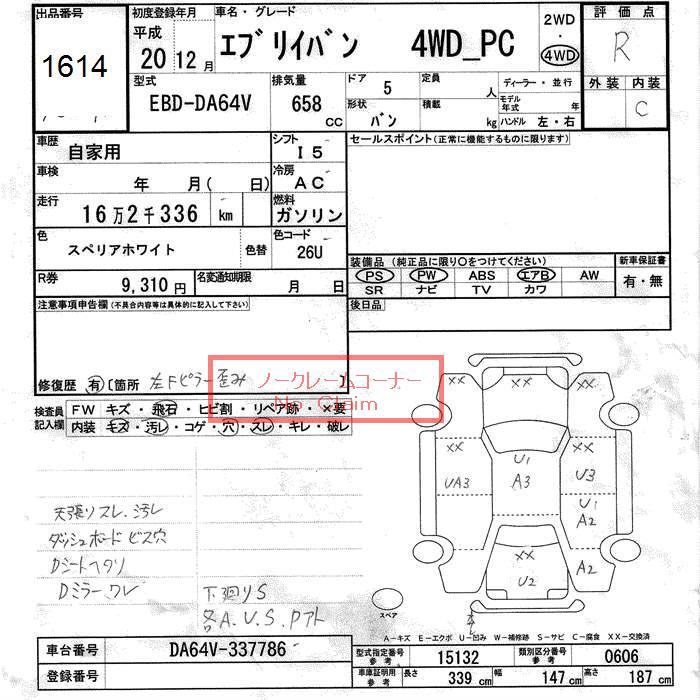 出品番号
1614
初度登録年月
平成 20 12 月
車名・グレード
エブリイバン 4WD_PC
2WD
・
4WD
評価点
R
外装 内装
C
型式
EBD-DA64V
排気量
658 CC
ドア 5
形状 バン
定員 人
積載 kg
ディーラー・並行
モデル年式 年
ハンドル 左・右
車歴
自家用
シフト
I 5
セールスポイント(正常に機能するものに限ります)
車検
年 月( 日)
冷房
AC
走行
16万2千336 km
燃料
ガソリン
色
スペリアホワイト
色替
色コード
26U
装備品(純正品に限り○をつけてください)
PS PW ABS エアB AW
SR ナビ TV カワ
新車保証書
有・無
R券
9,310円
名変通知期限
月 日
後日品
注意事項申告欄(不具合内容等は具体的に記入して下さい)
修復歴 有 〔箇所 左Fピラー歪み 〕
ノークレームコーナー
No Claim
検査員記入欄
FW キズ・飛石・ヒビ割・リペア跡・×要
内装 キズ・汚レ・コゲ・穴・スレ・キレ・破レ
天張リスレ、汚レ
ダッシュボードビス穴
Dシートヘタリ
Dミラーワレ
下廻りS
各A.U.S.Pアト
XX XX
XX XX
UA3
U1
A3
U3
U1
A2
XX
U2
A2
スペア
A
A-キズ E-エクボ U-凹み W-補修跡 S-サビ C-腐食 XX-交換済
車台番号 DA64V-337786
登録番号
型式指定番号 参考 15132
類別区分番号 参考 0606
車庫証明用 参考 長さ 339 cm 幅 147 cm 高さ 187 cm